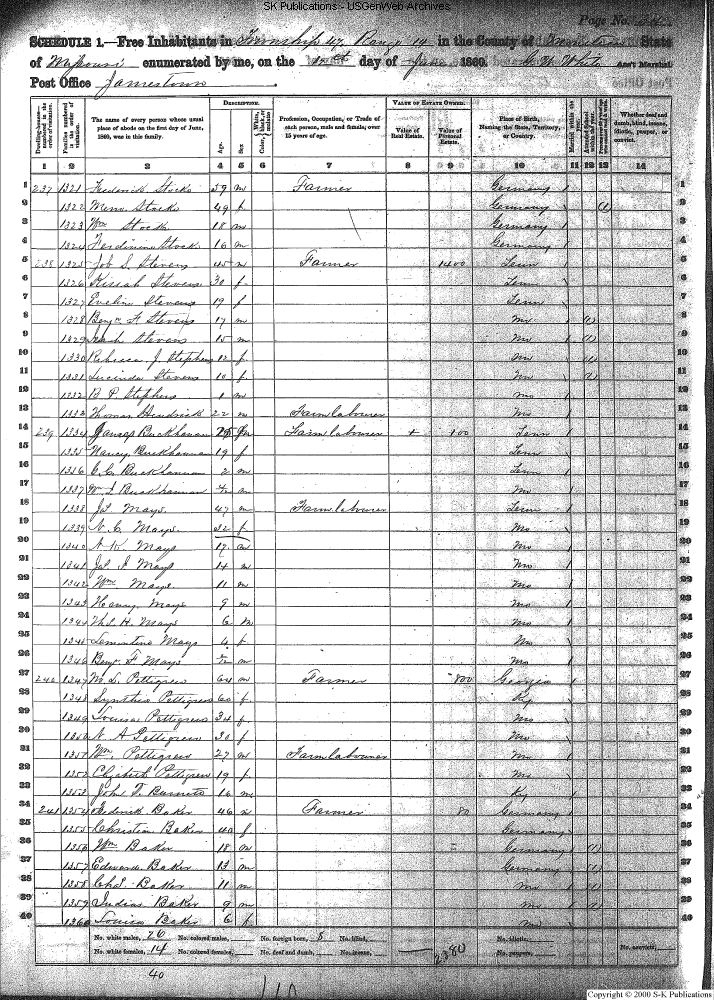 SK Publications - USGenWeb Archives
Page No.
SCHEDULE 1.—Free Inhabitants in Township 47 Range 14 in the County of State
of Missouri enumerated by me, on the day of 1860. Ass't Marshal
Post Office Jamestown
Dwelling-houses—numbered in the order of visitation.
Families numbered in the order of visitation.
The name of every person whose usual place of abode on the first day of June, 1860, was in this family.
DESCRIPTION.
Age.
Sex
Color, White, black, or mulatto
Profession, Occupation, or Trade of each person, male and female, over 15 years of age.
VALUE OF ESTATE OWNED.
Value of Real Estate.
Value of Personal Estate.
Place of Birth, Naming the State, Territory, or Country.
Married within the year.
Attended School within the year.
Whether deaf and dumb, blind, insane, idiotic, pauper, or convict.
1 2 3 4 5 6 7 8 9 10 11 12 13 14
1 237 1321 Frederick Stocks 59 m Farmer Germany 1
2 1322 Mena Stocks 49 f Germany (1) 2
3 1323 Wm Stock 18 m Germany 3
4 1324 Ferdinand Stock 16 m Germany 4
5 238 1325 Job S. Stevens 45 m Farmer 1400 Tenn 5
6 1326 Kissah Stevens 30 f Tenn 6
7 1327 Evelin Stevens 19 f Tenn 7
8 1328 Benj. F. Stevens 17 m Mo (1) 8
9 1329 Stevens 15 m Mo (1) 9
10 1330 Rebecca J. Stephens 12 f Mo (1) 10
11 1331 Lucinda Stevens 10 f Mo 11
12 1332 B P Stephens 1 m Mo 12
13 1333 Thomas Hendrick 22 m Farm labourer Mo 13
14 239 1334 Buckhannan m Farm labourer + 100 Tenn 14
15 1335 Nancy Buckhannan 19 f Tenn 15
16 1336 C. C. Buckhannan 2 m Tenn 16
17 1337 Wm Buckhannan m Mo 17
18 1338 Js. Mays 47 m Farm labourer Tenn 18
19 1339 N. C. Mays 32 f Mo 19
20 1340 Mays 17 m Mo 20
21 1341 Mays 14 m Mo 21
22 1342 Wm Mays 11 m Mo 22
23 1343 Mays 9 m Mo 23
24 1344 Ths. H. Mays 6 m Mo 24
25 1345 Mays 4 f Mo 25
26 1346 Benj. F Mays m Mo 26
27 240 1347 Pettigrew 64 m Farmer 800 Georgia 27
28 1348 Synthia Pettigrew 60 f Ky 28
29 1349 Louisa Pettigrew 34 f Mo 29
30 1350 N A Pettigrew 30 f Mo 30
31 1351 Wm. Pettigrew 27 m Farm labourer Mo 31
32 1352 Elizabeth Pettigrew 19 f Mo 32
33 1353 John T. 16 m Ky 33
34 241 1354 Frederick Baker 46 m Farmer 80 Germany 34
35 1355 Christian Baker 40 f Germany 35
36 1356 Wm Baker 18 m Germany (1) 36
37 1357 Edward Baker 13 m Germany (1) 37
38 1358 Chs. Baker 11 m Mo (1) 38
39 1359 Baker 9 m Mo (1) 39
40 1360 Louisa Baker 6 f Mo 40
No. white males, 26 No. colored males, No. foreign born, 8 No. blind, 2380 No. idiotic,
No. white females, 14 No. colored females, No. deaf and dumb, No. insane, No. paupers, No. convicts,
40
Copyright © 2000 S-K Publications